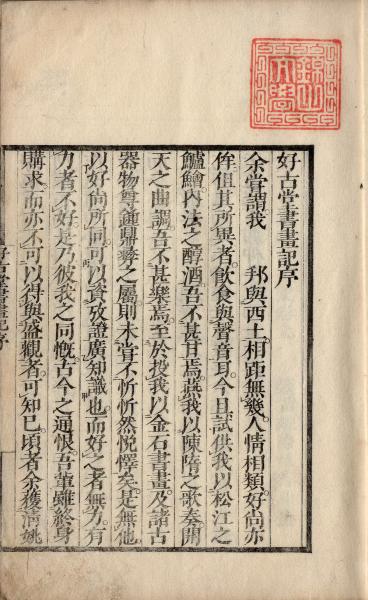 好古堂書畫記序
余嘗謂我 邦與西土相距無幾人情相類好尚亦
侔但其所異者飲食與聲音耳今且試供我以松江之
鱸鱠內法之醇酒吾不甚甘焉燕我以陳隋之歌奏開
天之曲調吾不甚樂焉至於投我以金石書畫及諸古
器物尊鍾鼎彝之屬則未嘗不忻忻然悅懌矣是無他
以好尚所同可以資攷證廣知識也而好之者無力有
力者不好是乃彼我之同慨古今之通恨吾輩雖終身
購求而亦不可以得與盛觀者可知已頃者余獲淸姚
好古堂書畫記序